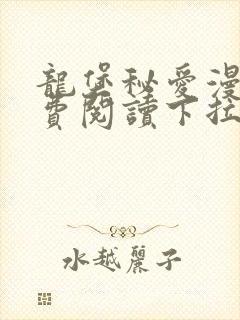 龍堡秘愛漫
費閱讀下拉
水越麗子